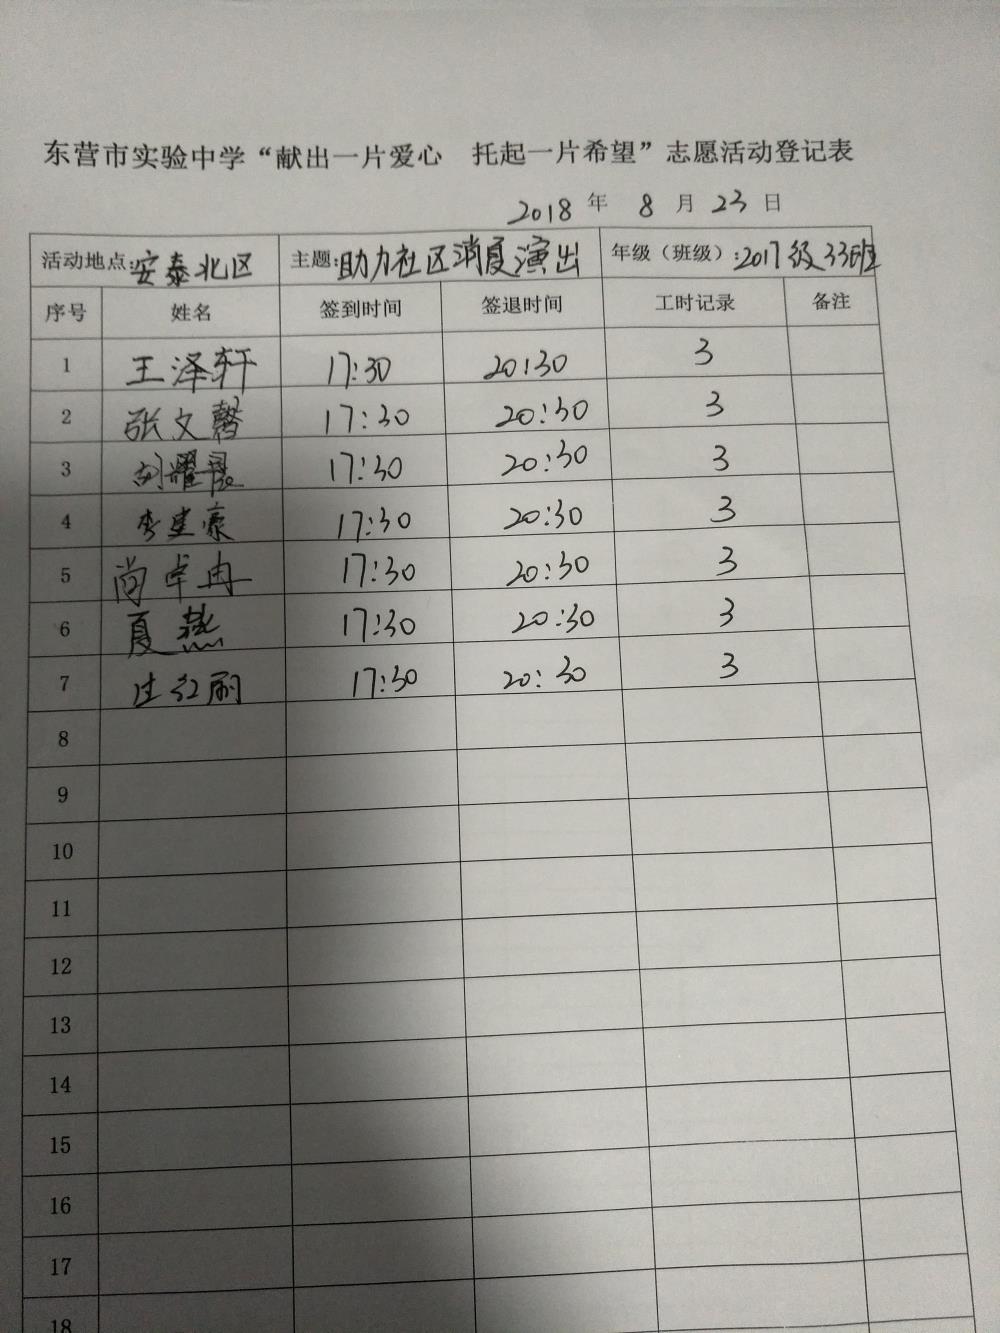 东营市实验中学“献出一片爱心 托起一片希望”志愿活动登记表
2018 年 8 月 23 日
活动地点:安泰北区 主题:助力社区消夏演出 年级（班级）:2017级33班
序号 姓名 签到时间 签退时间 工时记录 备注
1 王泽轩 17:30 20:30 3
2 张文馨 17:30 20:30 3
3 胡耀 17:30 20:30 3
4 李建豪 17:30 20:30 3
5 尚卓冉 17:30 20:30 3
6 夏燕 17:30 20:30 3
7 17:30 20:30 3
8
9
10
11
12
13
14
15
16
17
18